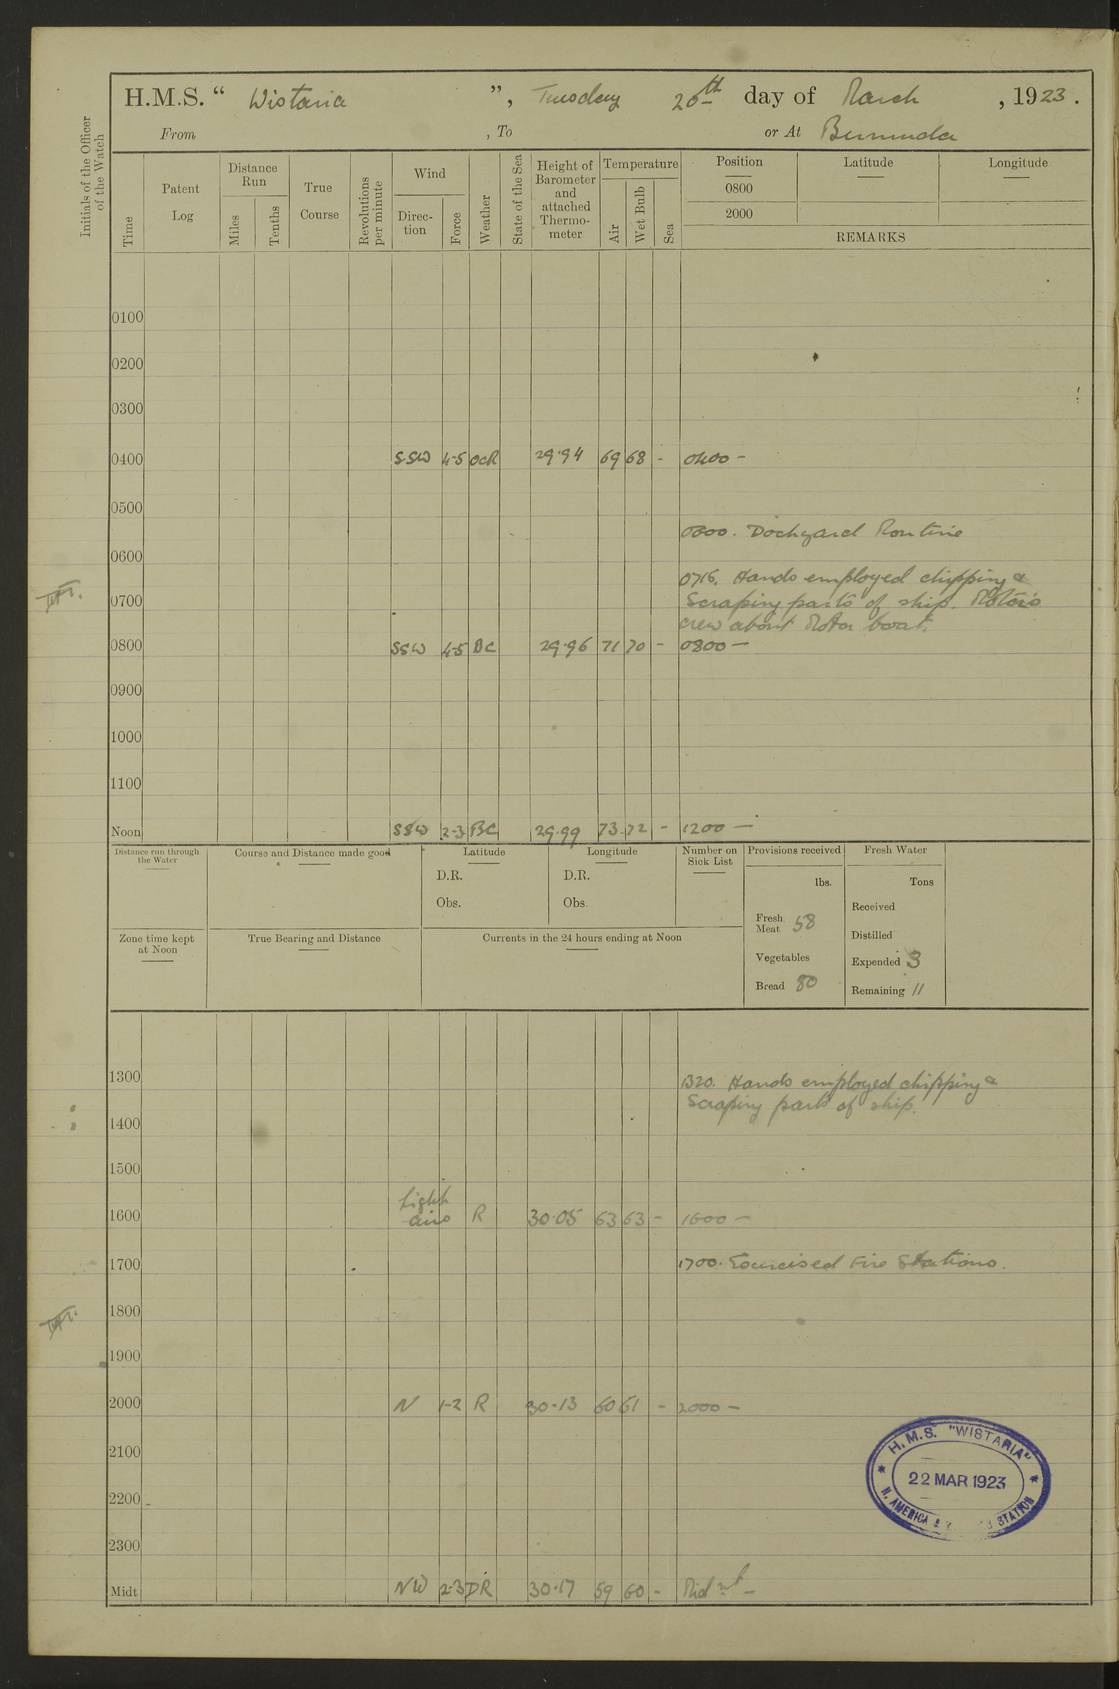 H.M.S. “ Wistaria ”, Tuesday 20th day of March , 1923.
From , To or At Bermuda
Initials of the Officer
of the Watch
Time
Patent
Log
Distance
Run
Miles
Tenths
True
Course
Revolutions
per minute
Wind
Direc-
tion
Force
Weather
State of the Sea
Height of
Barometer
and
attached
Thermo-
meter
Temperature
Air
Wet Bulb
Sea
Position Latitude Longitude
0800
2000
REMARKS
0100
0200
0300
0400 SSW 4-5 OCR 29.94 69 68 - 0400 -
0500
0600. Dockyard Routine
0600
0715. Hands employed chipping &
0700 Scraping parts of ship. Motor's
crew about Motor boat.
0800 SSW 4-5 BC 29.96 71 70 - 0800 -
0900
1000
1100
Noon SSW 2-3 BC 29.99 73 72 - 1200 -
Distance run through
the Water
Course and Distance made good
Latitude
D.R.
Obs.
Longitude
D.R.
Obs.
Number on
Sick List
Provisions received
lbs.
Fresh
Meat 58
Vegetables
Bread 80
Fresh Water
Tons
Received
Distilled
Expended 3
Remaining 11
Zone time kept
at Noon
True Bearing and Distance
Currents in the 24 hours ending at Noon
1300 1320. Hands employed chipping &
Scraping parts of ship.
1400
1500
1600 Light airs R 30.05 63 63 - 1600 -
1700 1700. Exercised Fire Stations.
1800
1900
2000 N 1-2 R 30.13 60 61 - 2000 -
2100
2200
2300
Midt NW 2-3 DR 30.17 59 60 - Mid nt -
H.M.S. "WISTARIA"
22 MAR 1923
N. AMERICA & STATION